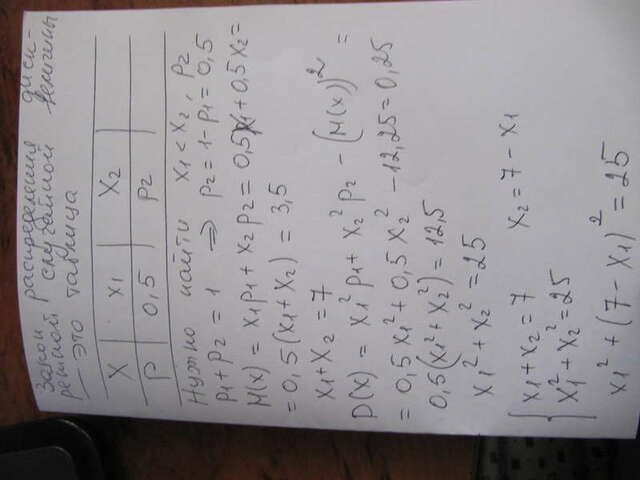 Закон распределения диск-
ретной случайной величины
— это таблица
X | x1 | x2
P | 0,5 | p2
Нужно найти x1 < x2, p2
p1+p2 = 1 ⇒ p2 = 1-p1 = 0,5
M(x) = x1p1 + x2p2 = 0,5x1 + 0,5x2 =
= 0,5(x1+x2) = 3,5
x1+x2 = 7
D(x) = x1²p1 + x2²p2 - (M(x))² =
= 0,5x1² + 0,5x2² - 12,25 = 0,25
0,5(x1² + x2²) = 12,5
x1² + x2² = 25
{ x1+x2 = 7 x2 = 7 - x1
x1² + x2² = 25
x1² + (7 - x1)² = 25